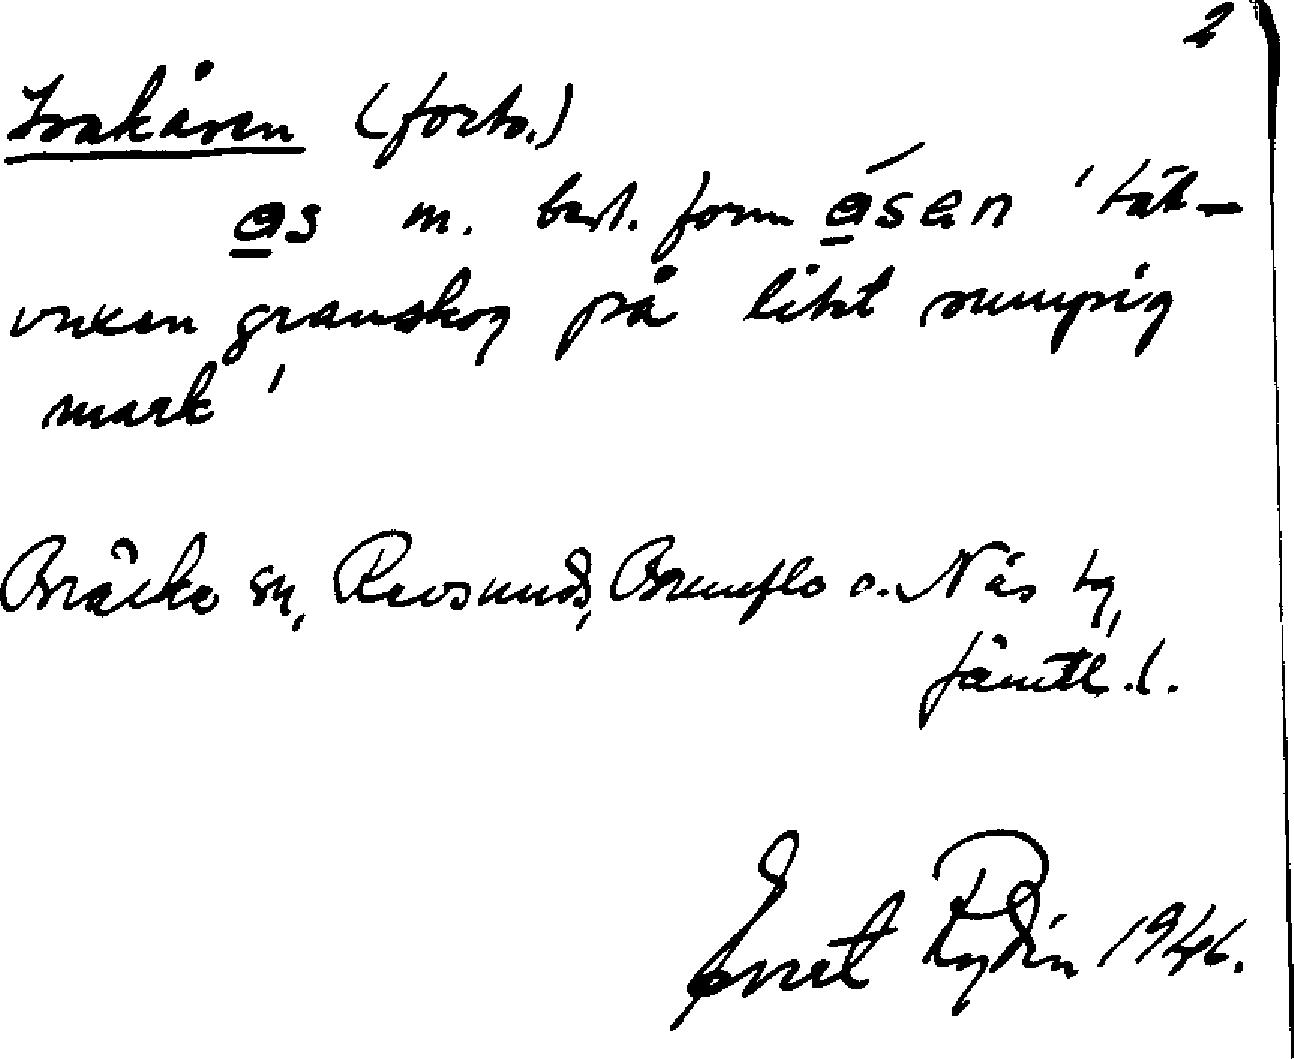 2
(forts.)
as m. best. form ásen 'tät-
vuxen granskog på likt sumpig
mark'
Bräcke sn, Revsunds, Brunflo o. Näs tg,
Jämtl. l.
Evert Rydin 1946.